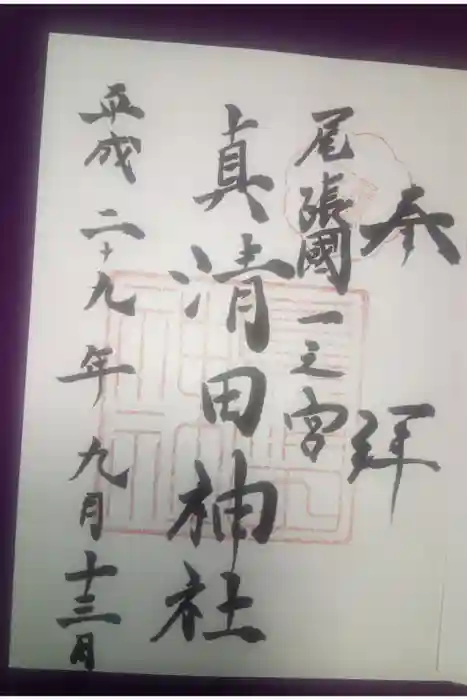 奉拜
尾張國一之宮
真清田神社
平成二十九年九月十三日